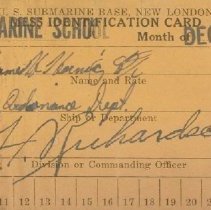 U. S. SUBMARINE BASE, NEW LONDON
MESS IDENTIFICATION CARD
MARINE SCHOOL Month of DEC
Name and Rate
Ordnance Dept
Ship or Department
Richardson
Division or Commanding Officer
11 12 13 14 15 16 17 18 19 20 2